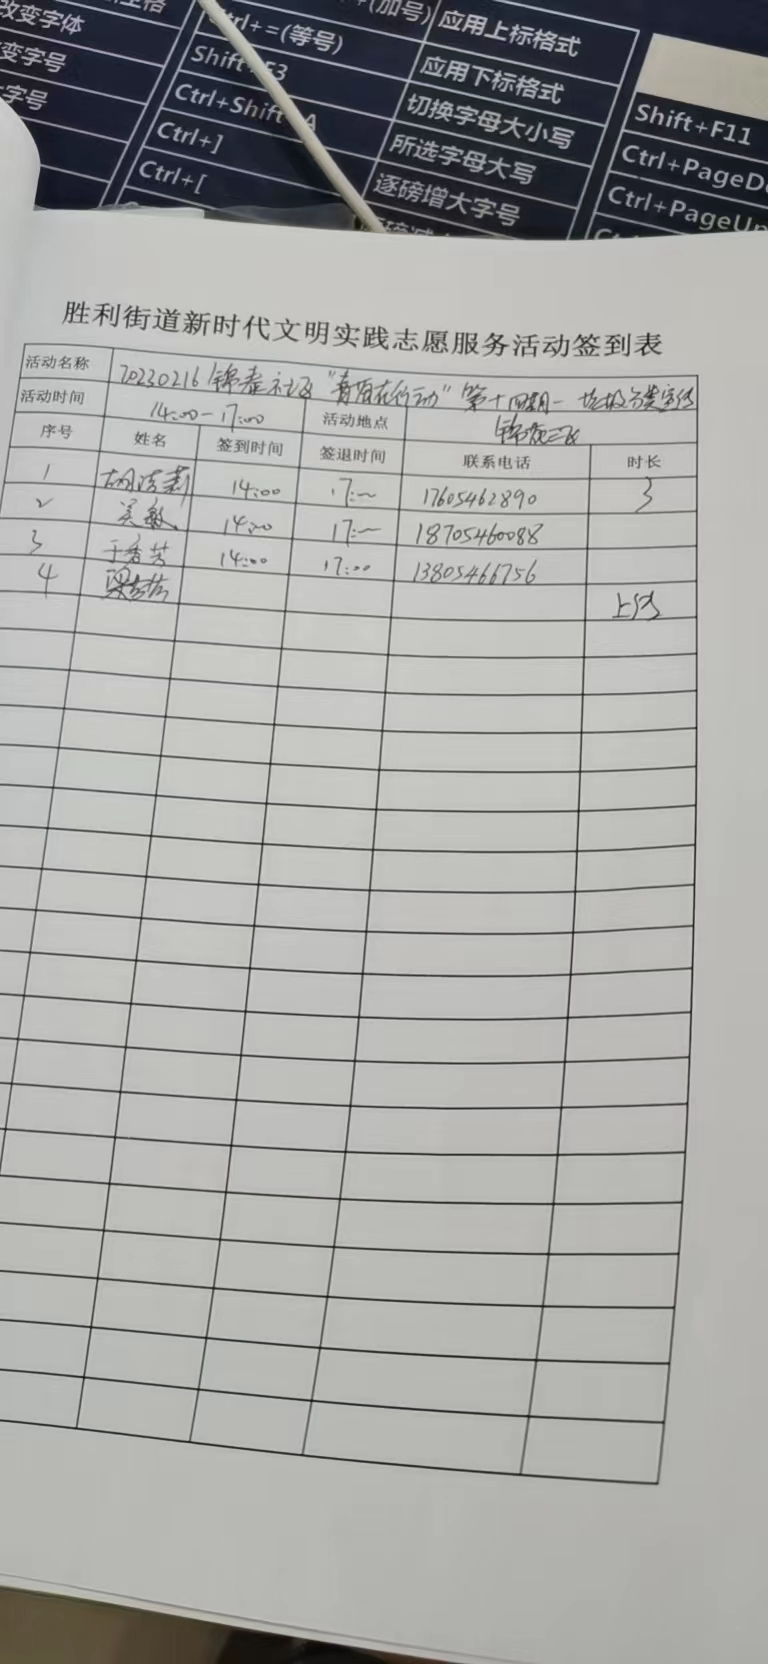 改变字体
变字号
字号
(加号) 应用上标格式
Ctrl+=(等号) 应用下标格式
Shift+F3 切换字母大小写
Ctrl+Shift+A 所选字母大写
Ctrl+] 逐磅增大字号
Ctrl+[
Shift+F11
Ctrl+PageD
Ctrl+PageUp
胜利街道新时代文明实践志愿服务活动签到表
活动名称 20230216 锦 社区 在行动" 第十四期- 垃圾分类宣传
活动时间 14:00-17:00 活动地点 锦
序号 姓名 签到时间 签退时间 联系电话 时长
1 胡 莉 14:00 17:00 17605462890 3
2 吴敏 14:00 17:00 18705460088
3 于香芸 14:00 17:00 13805466756
4 梁
上传